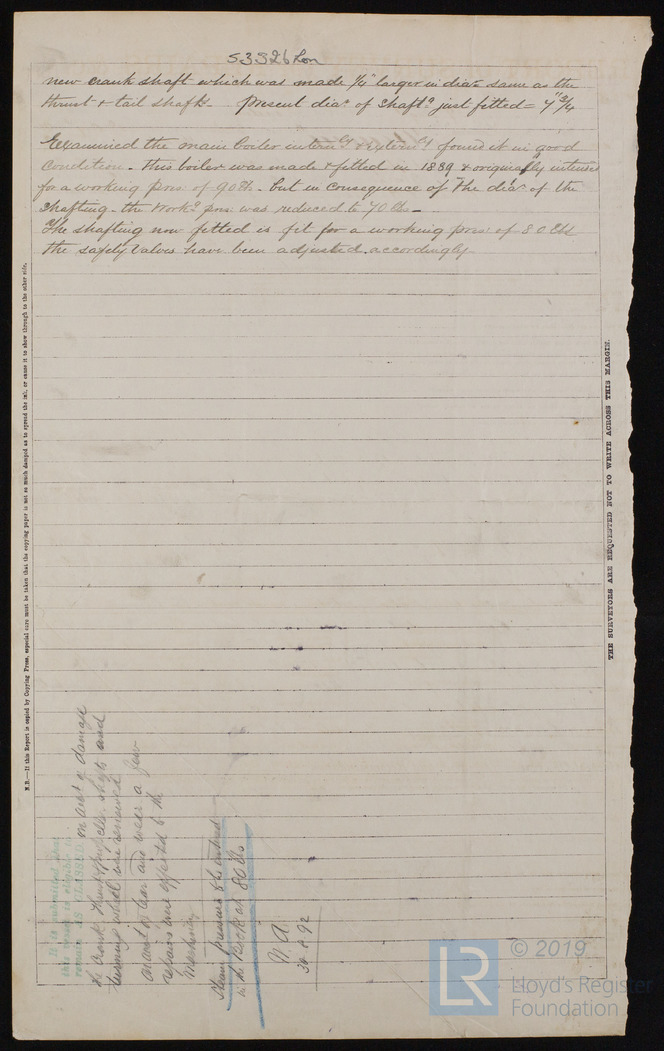 53526 Lon
new crank shaft which was made 1/4" larger in diar same as the
thrust & tail shafts. Present diar of shaftg just fitted = 7"3/4
Examined the main boiler internly & externly found it in good
condition. This boiler was made & fitted in 1889 & originally intended
for a working pres. of 90 lbs. but in consequence of the diar of the
shafting the workg pres. was reduced to 70 lbs —
The shafting now fitted is fit for a working pres: of 80 lbs
the safety valves have been adjusted accordingly.
N.B.—If this Report is copied by Copying Press, especial care must be taken that the copying paper is not so much damped as to spread the ink, or cause it to show through to the other side.
THE SURVEYORS ARE REQUESTED NOT TO WRITE ACROSS THIS MARGIN.
It is submitted that
this vessel is eligible to
remain AS CLASSED. on acct of damage
the crank thrust propeller shafts and
turning wheel were renewed
on acct of tear and wear a few
repairs were effected to the
machinery
Steam pressure to be entered
in the Book as 80 lbs
30.8.92
© 2019
LR
Lloyd's Register
Foundation